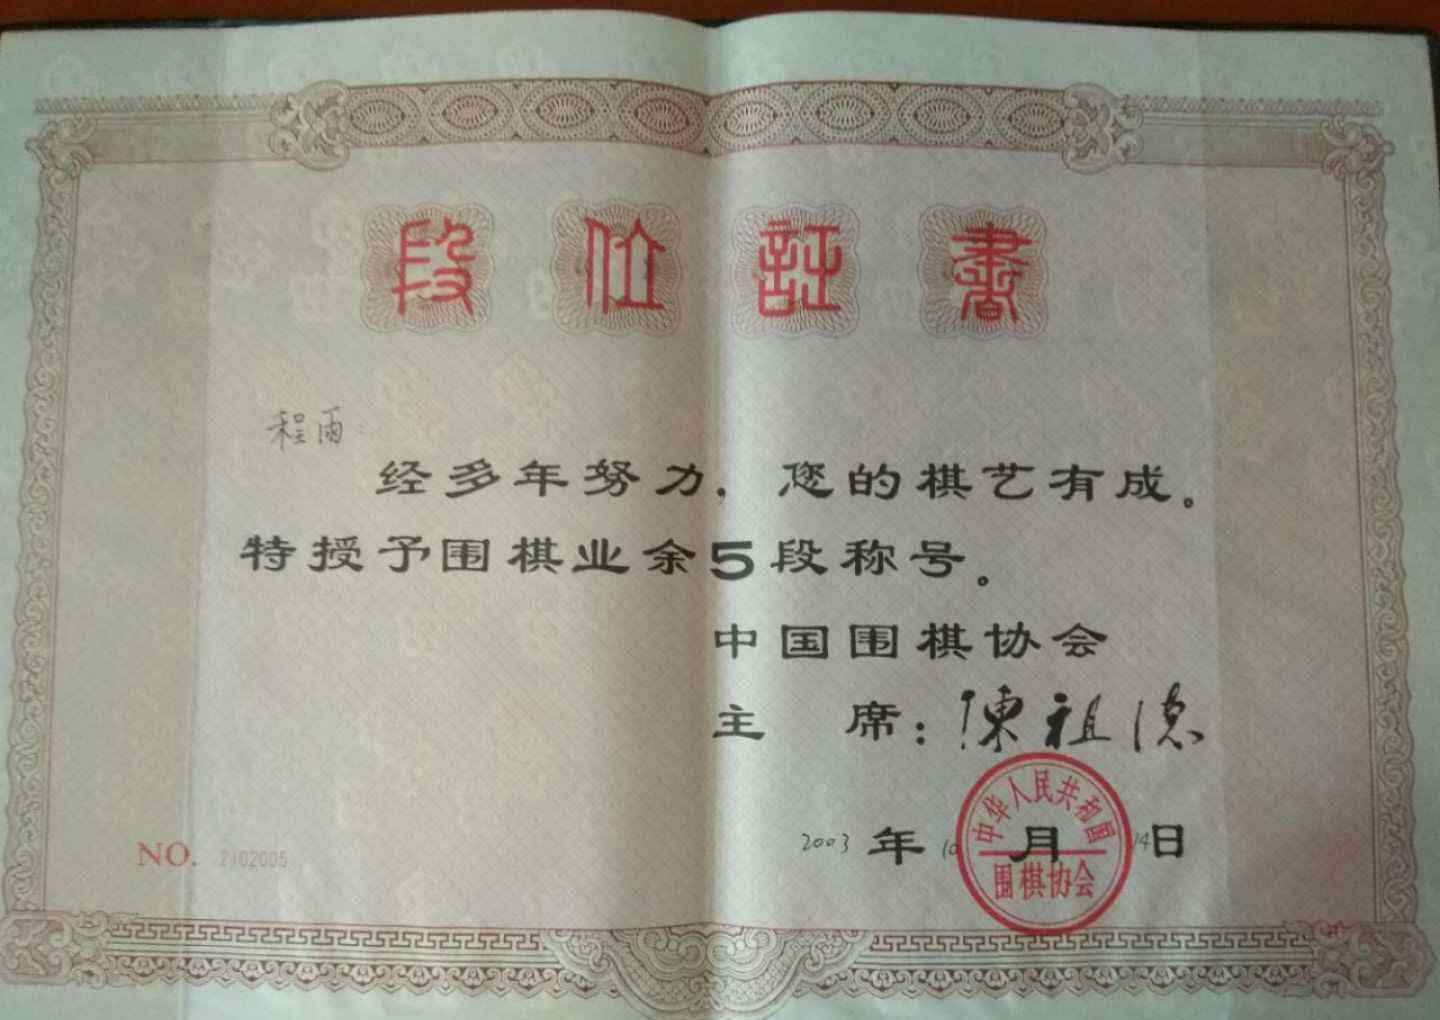 段位証書
程雨：
经多年努力，您的棋艺有成。
特授予围棋业余5段称号。
中国围棋协会
主 席：陳祖德
2003年10月14日
中华人民共和国
围棋协会
NO. 2102005